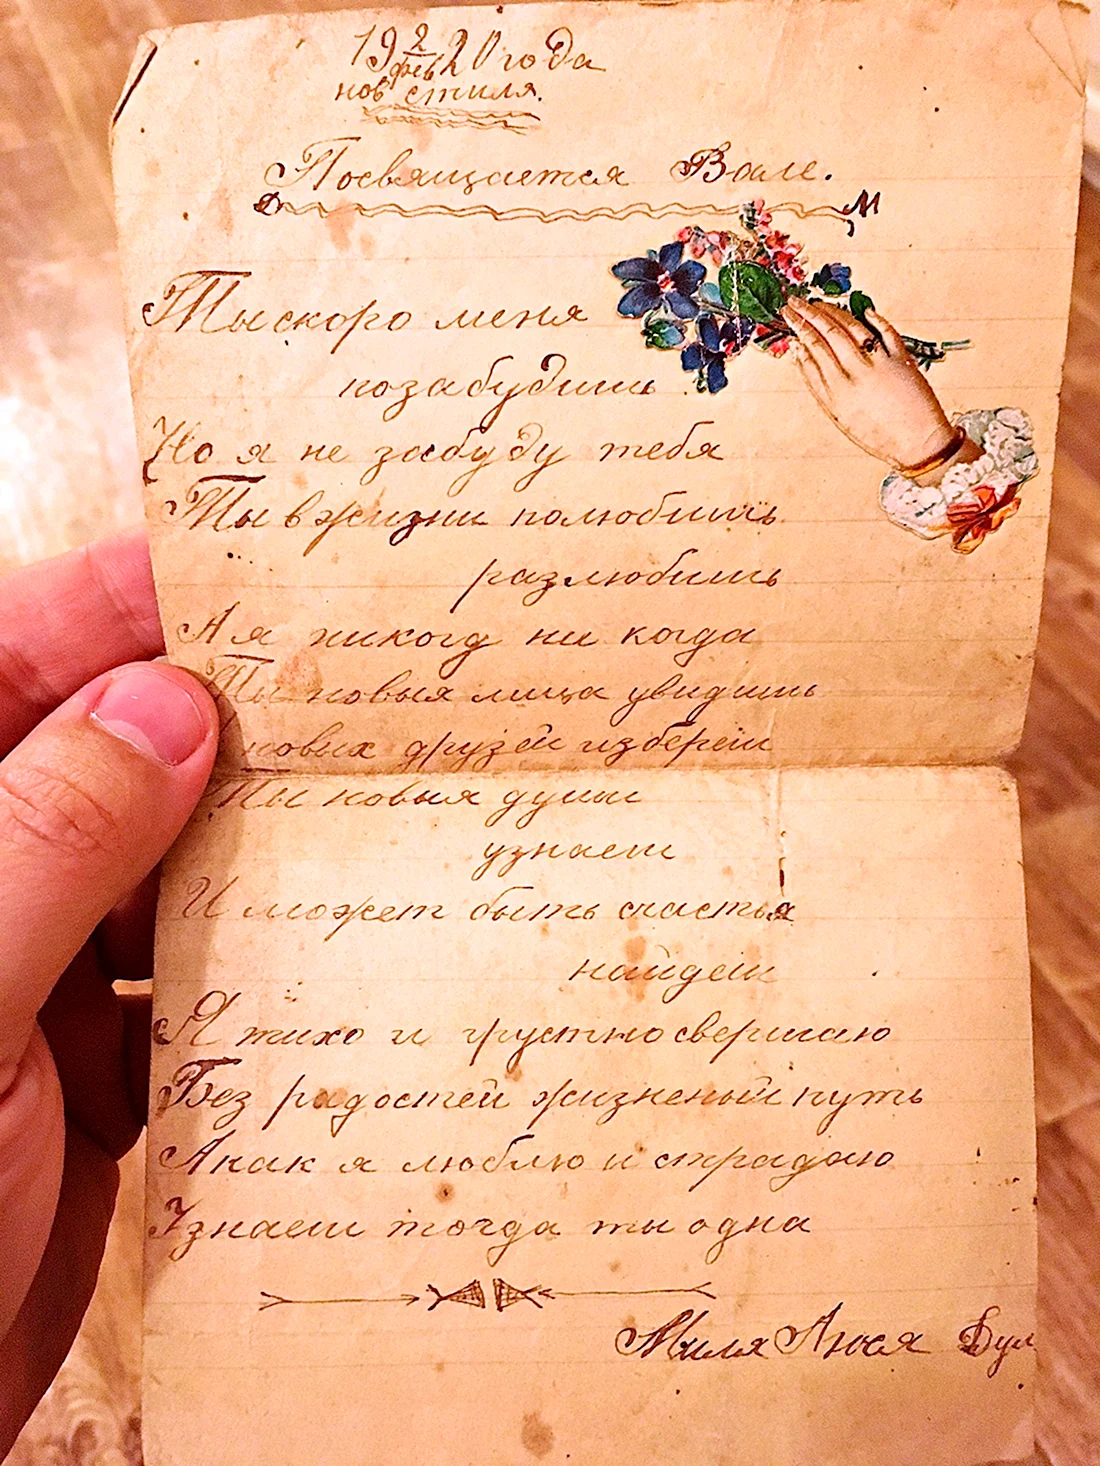 19 2/фев 20 года
нов стиля.
Посвящается Вале.
М
Ты скоро меня
позабудишь
Но я не забуду тебя
Ты в жизни полюбишь
разлюбишь
А я никогд ни когда
Ты новыя лица увидишь
новых друзей изберёш
Ты новыя душы
узнаеш
И может быть счастья
найдеш
Я тихо и грустно свершаю
Без радостей жизненый путь
А как я люблю и страдаю
Узнаеш тогда ты одна
Миля Бул